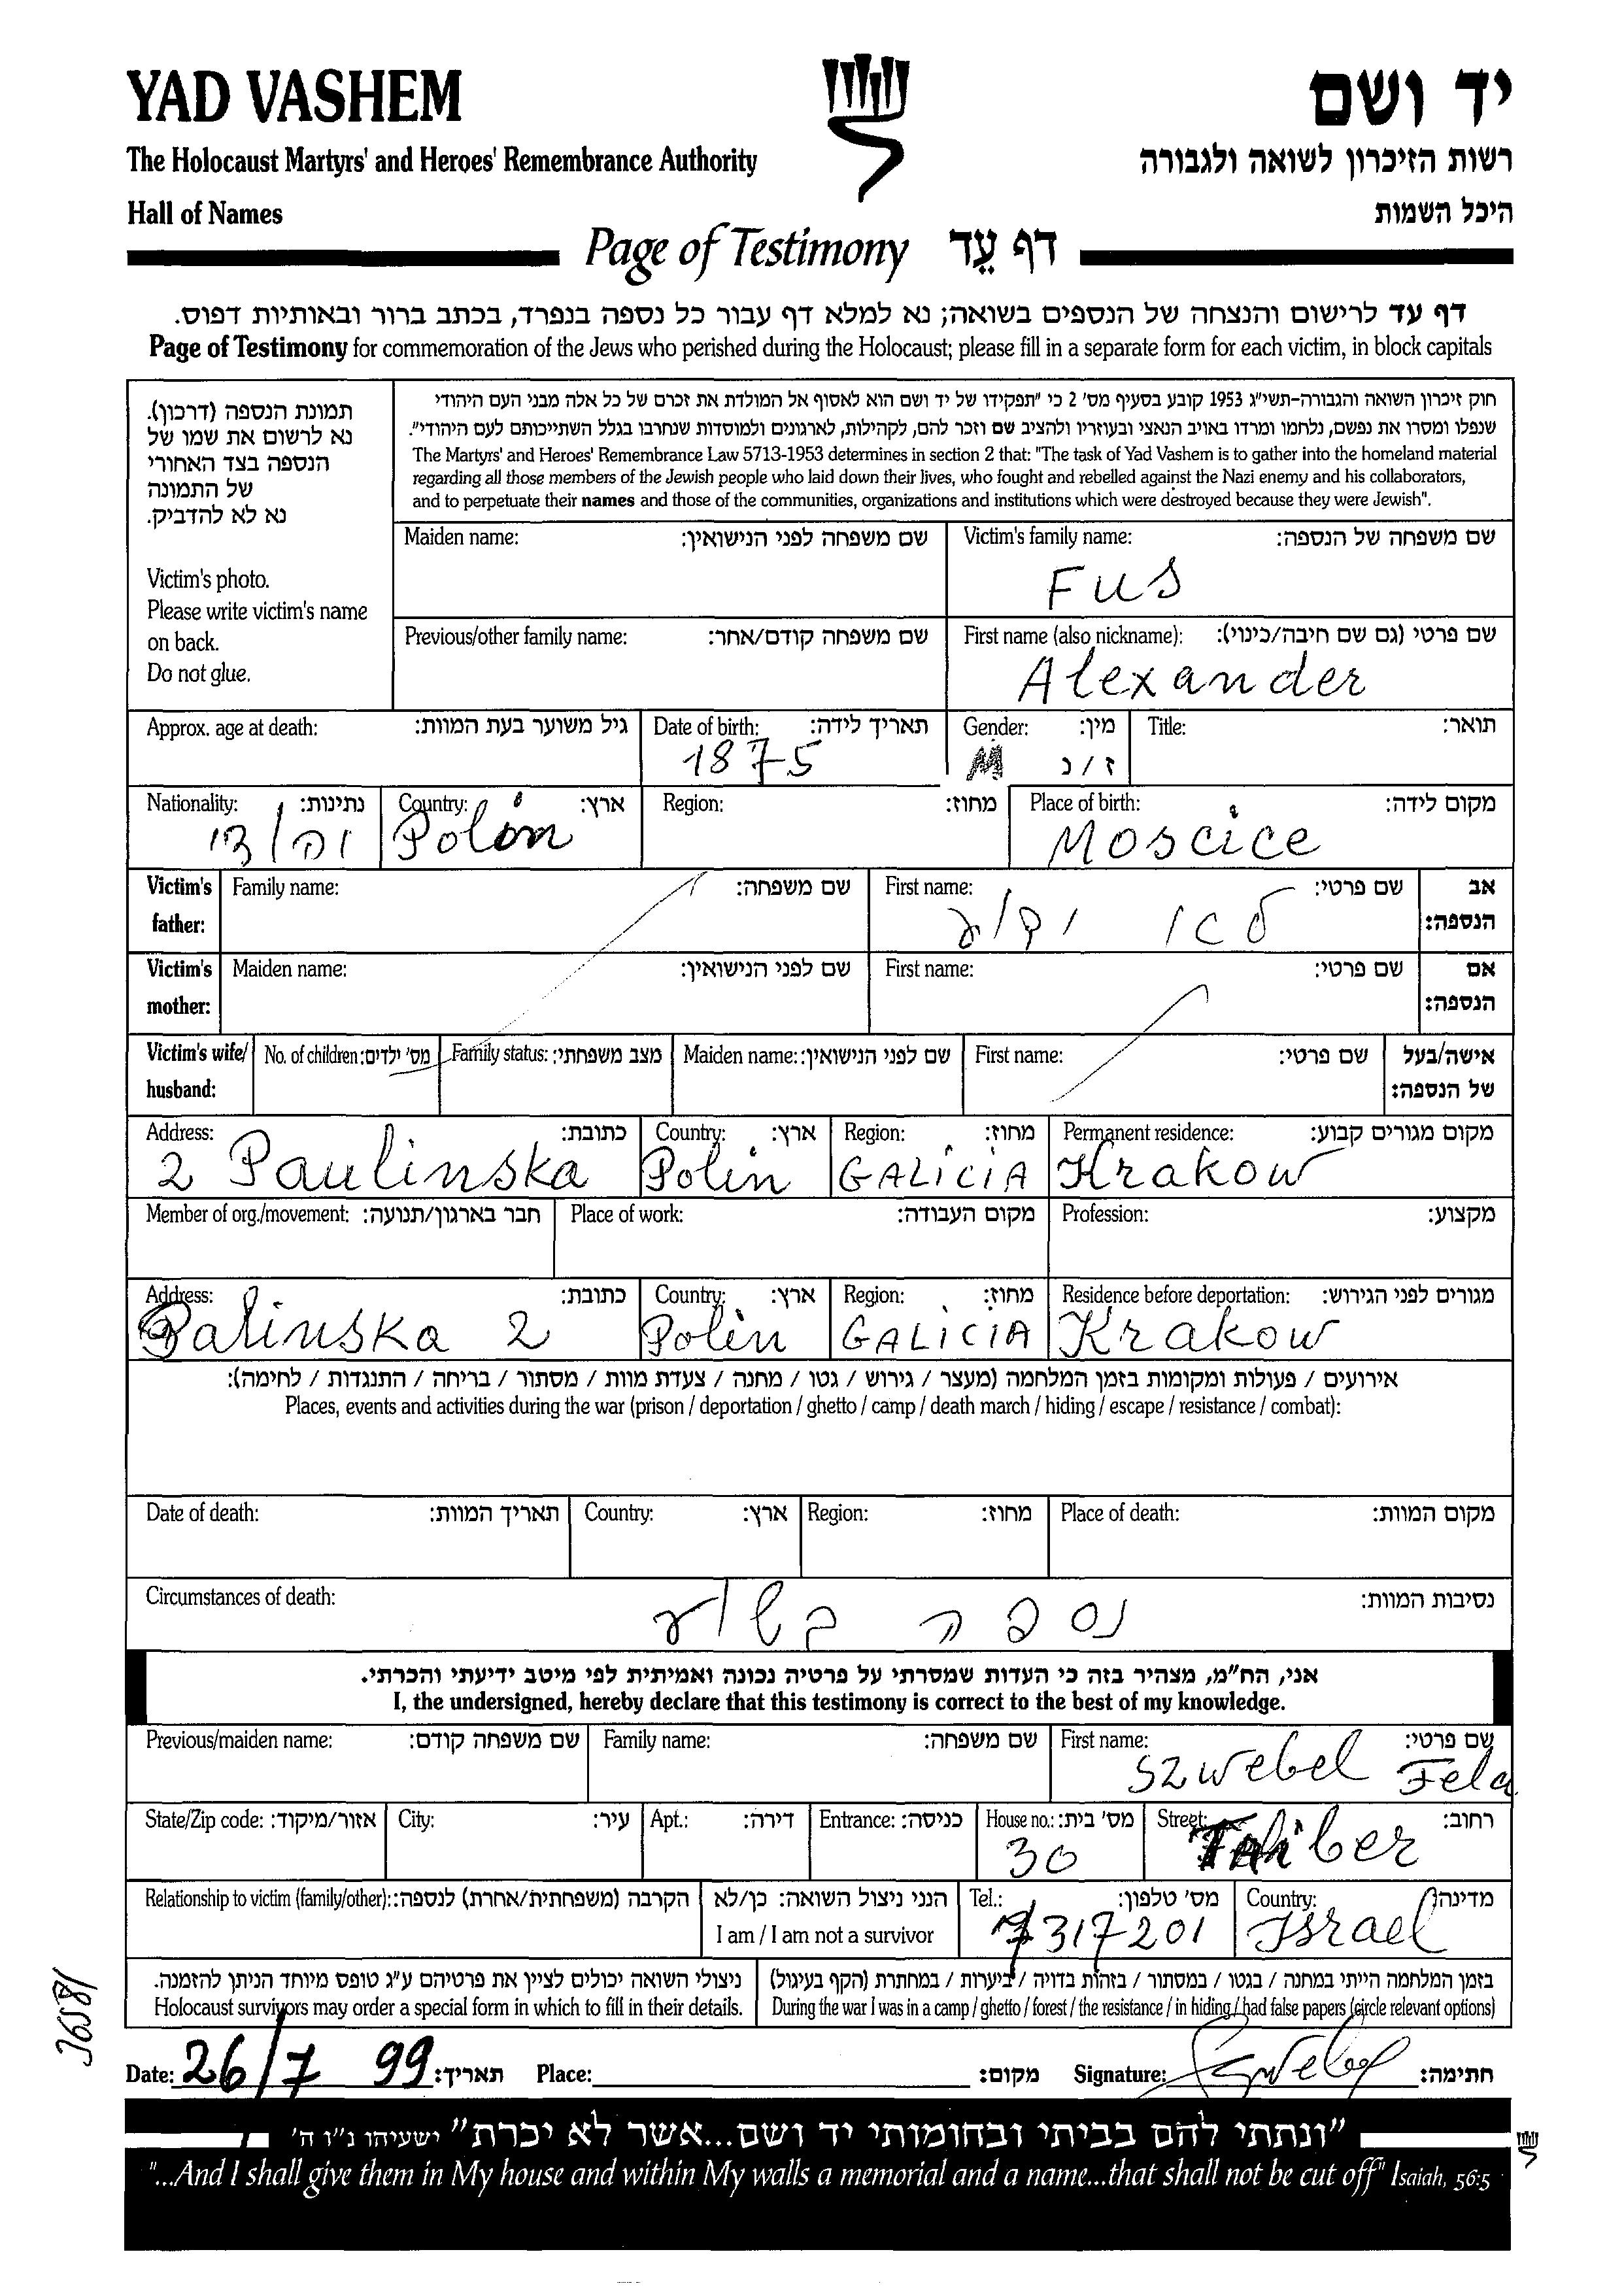 YAD VASHEM
יד ושם
The Holocaust Martyrs' and Heroes' Remembrance Authority
רשות הזיכרון לשואה ולגבורה
Hall of Names
היכל השמות
Page of Testimony דף עֵד
דף עד לרישום והנצחה של הנספים בשואה; נא למלא דף עבור כל נספה בנפרד, בכתב ברור ובאותיות דפוס.
Page of Testimony for commemoration of the Jews who perished during the Holocaust; please fill in a separate form for each victim, in block capitals
תמונת הנספה (דרכון).
נא לרשום את שמו של
הנספה בצד האחורי
של התמונה
נא לא להדביק.
Victim's photo.
Please write victim's name
on back.
Do not glue.
חוק זיכרון השואה והגבורה-תשי"ג 1953 קובע בסעיף מס' 2 כי "תפקידו של יד ושם הוא לאסוף אל המולדת את זכרם של כל אלה מבני העם היהודי
שנפלו ומסרו את נפשם, נלחמו ומרדו באויב הנאצי ובעוזריו ולהציב שם וזכר להם, לקהילות, לארגונים ולמוסדות שנחרבו בגלל השתייכותם לעם היהודי".
The Martyrs' and Heroes' Remembrance Law 5713-1953 determines in section 2 that: "The task of Yad Vashem is to gather into the homeland material
regarding all those members of the Jewish people who laid down their lives, who fought and rebelled against the Nazi enemy and his collaborators,
and to perpetuate their names and those of the communities, organizations and institutions which were destroyed because they were Jewish".
Maiden name: שם משפחה לפני הנישואין:
Victim's family name: שם משפחה של הנספה:
Fus
Previous/other family name: שם משפחה קודם/אחר:
First name (also nickname): שם פרטי (גם שם חיבה/כינוי):
Alexander
Approx. age at death: גיל משוער בעת המוות:
Date of birth: תאריך לידה:
1875
Gender: מין:
M ז/נ
Title: תואר:
Nationality: נתינות:
Country: ארץ:
Polin
Region: מחוז:
Place of birth: מקום לידה:
Moscice
Victim's father:
Family name: שם משפחה:
First name: שם פרטי:
לא ידוע
אב הנספה:
Victim's mother:
Maiden name: שם לפני הנישואין:
First name: שם פרטי:
אם הנספה:
Victim's wife/ husband:
No. of children: מס' ילדים:
Family status: מצב משפחתי:
Maiden name: שם לפני הנישואין:
First name: שם פרטי:
אישה/בעל של הנספה:
Address: כתובת:
2 Paulinska
Country: ארץ:
Polin
Region: מחוז:
GALICIA
Permanent residence: מקום מגורים קבוע:
Krakow
Member of org./movement: חבר בארגון/תנועה:
Place of work: מקום העבודה:
Profession: מקצוע:
Address: כתובת:
Palinska 2
Country: ארץ:
Polin
Region: מחוז:
GALICIA
Residence before deportation: מגורים לפני הגירוש:
Krakow
אירועים / פעולות ומקומות בזמן המלחמה (מעצר / גירוש / גטו / מחנה / צעדת מוות / מסתור / בריחה / התנגדות / לחימה):
Places, events and activities during the war (prison / deportation / ghetto / camp / death march / hiding / escape / resistance / combat):
Date of death: תאריך המוות:
Country: ארץ:
Region: מחוז:
Place of death: מקום המוות:
Circumstances of death: נסיבות המוות:
נספה בשוא
אני, הח"מ, מצהיר בזה כי העדות שמסרתי על פרטיה נכונה ואמיתית לפי מיטב ידיעתי והכרתי.
I, the undersigned, hereby declare that this testimony is correct to the best of my knowledge.
Previous/maiden name: שם משפחה קודם:
Family name: שם משפחה:
First name: שם פרטי:
Szwebel Fela
State/Zip code: אזור/מיקוד:
City: עיר:
Apt.: דירה:
Entrance: כניסה:
House no.: מס' בית:
30
Street: רחוב:
Relationship to victim (family/other): הקרבה (משפחתית/אחרת) לנספה:
הנני ניצול השואה: כן/לא
I am / I am not a survivor
Tel.: מס' טלפון:
7317201
Country: מדינה:
Israel
ניצולי השואה יכולים לציין את פרטיהם ע"ג טופס מיוחד הניתן להזמנה.
Holocaust survivors may order a special form in which to fill in their details.
בזמן המלחמה הייתי במחנה / בגטו / במסתור / ביערות / במחתרת / בזהות בדויה (הקף בעיגול)
During the war I was in a camp / ghetto / forest / the resistance / in hiding / had false papers (circle relevant options)
36581
Date: 26/7 99 תאריך:
Place: מקום:
Signature: Szwebel חתימה:
"ונתתי להם בביתי ובחומותי יד ושם...אשר לא יכרת" ישעיהו נ"ו ה'
"...And I shall give them in My house and within My walls a memorial and a name...that shall not be cut off" Isaiah, 56:5